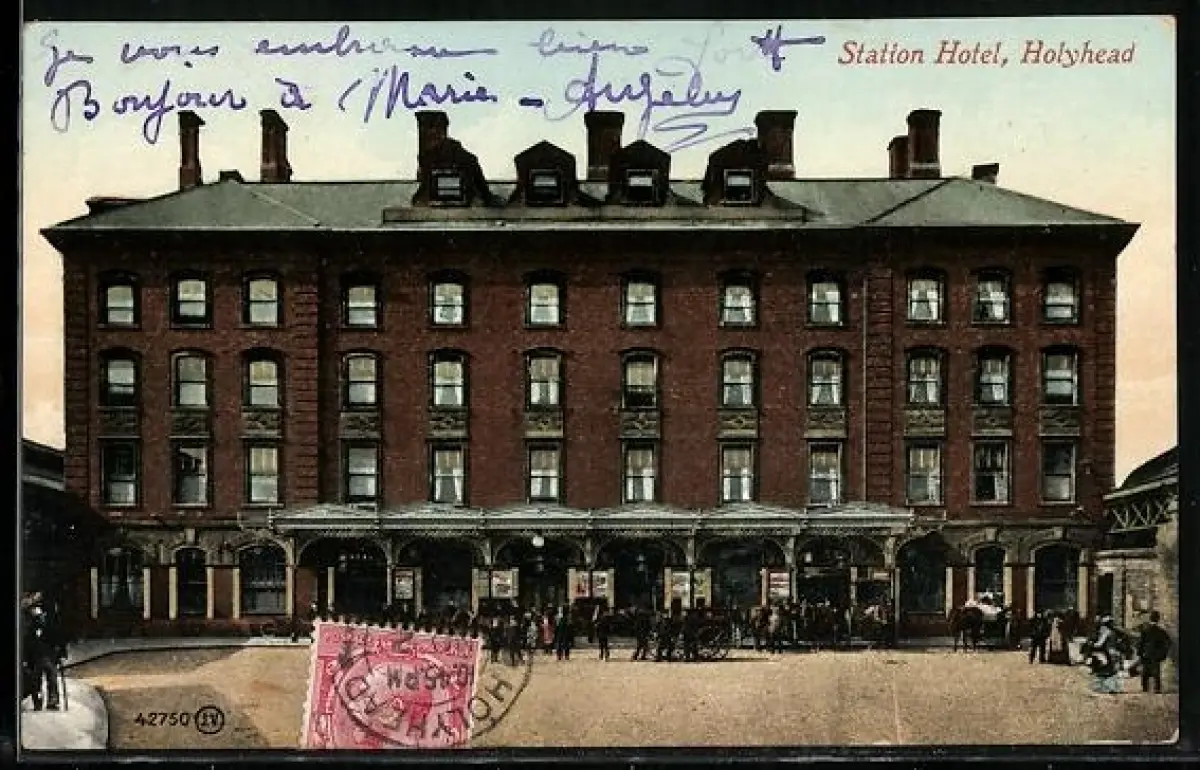 Je vous embrasse bien fort
Station Hotel, Holyhead
Bonjour à Marie-Angèle
42750 JV
HOLYHEAD
10.45 PM